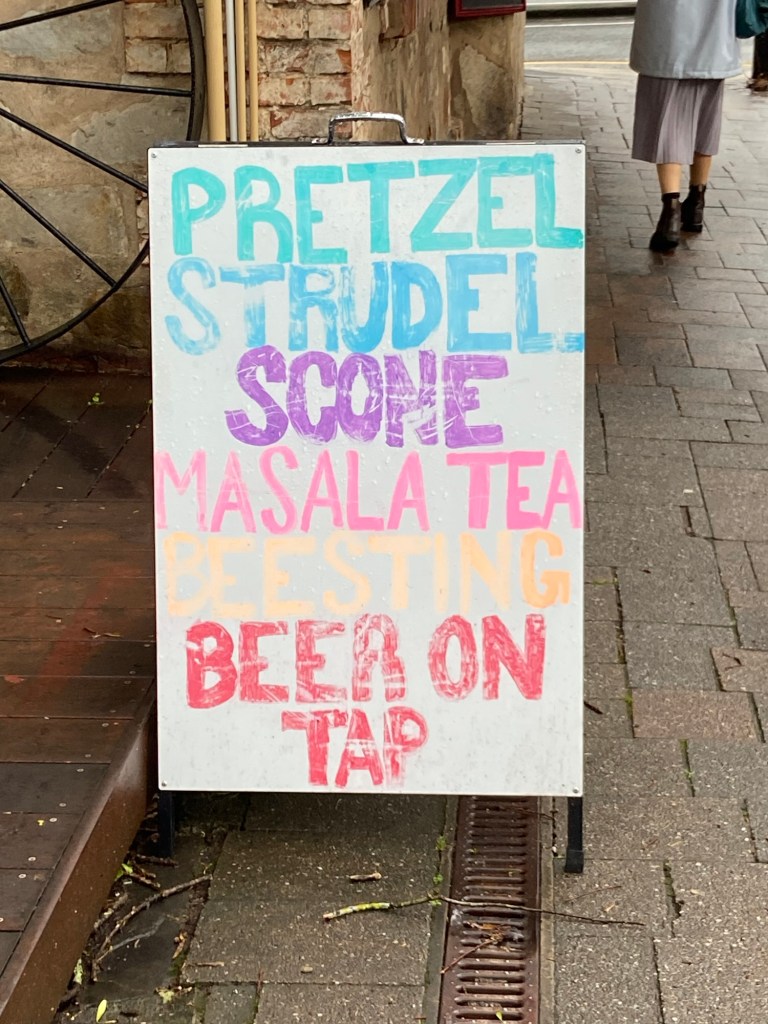 PRETZEL
STRUDEL
SCONE
MASALA TEA
BEESTING
BEER ON
TAP